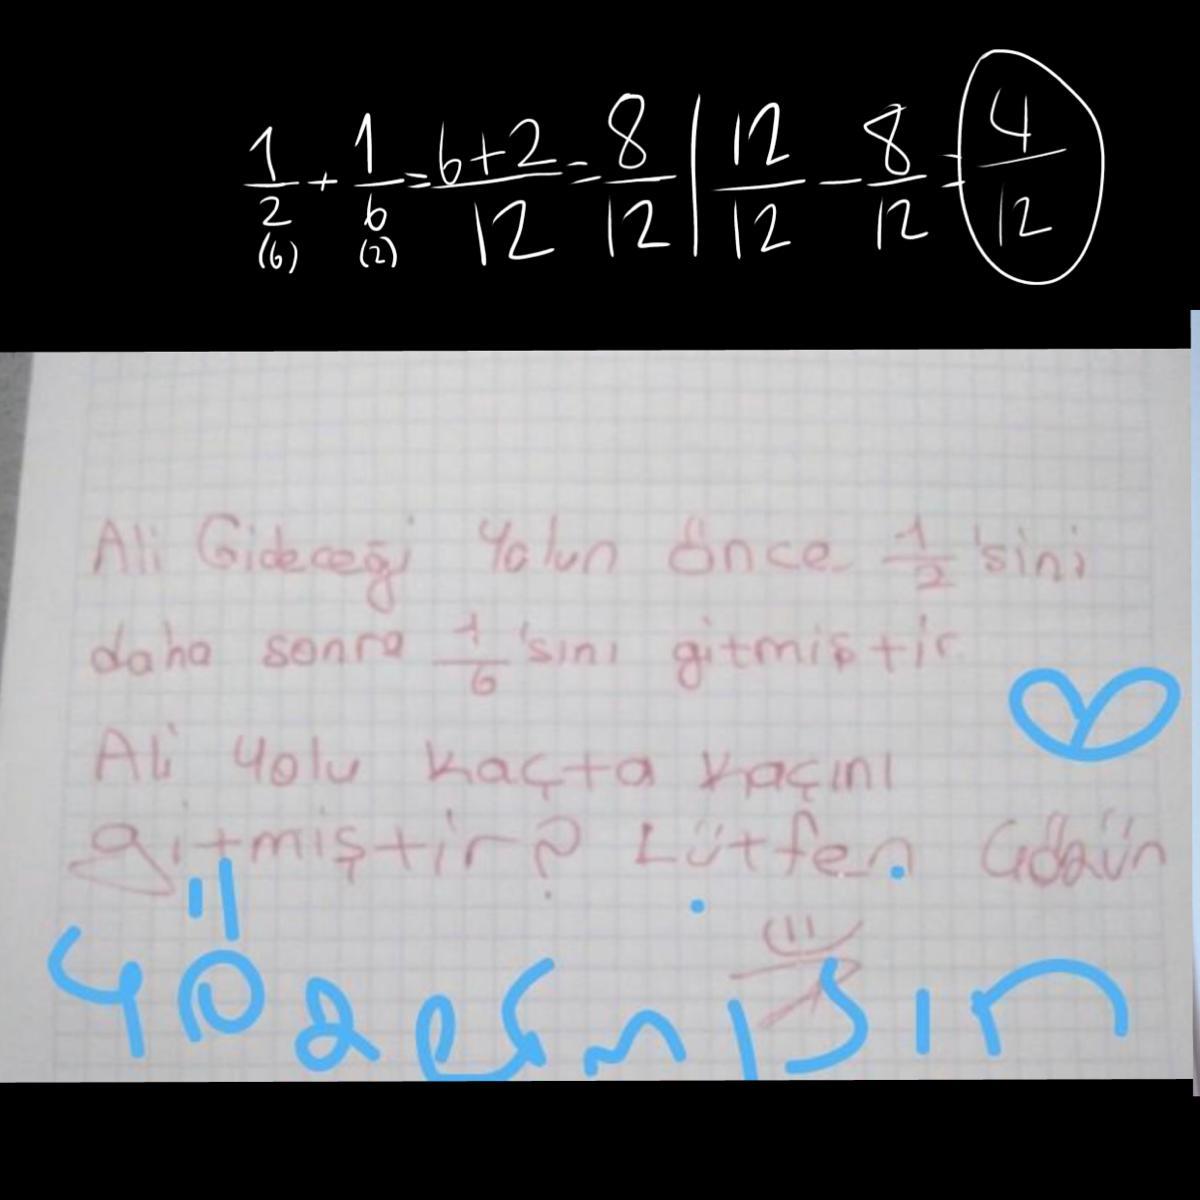 1/2 + 1/6 = 6+2/12 = 8/12 | 12/12 - 8/12 = 4/12
(6) (2)
Ali Gideceği Yolun Önce 1/2 'sini
daha sonra 1/6 'sını gitmiştir
Ali Yolu Kaçta Kaçını
gitmiştir? Lütfen